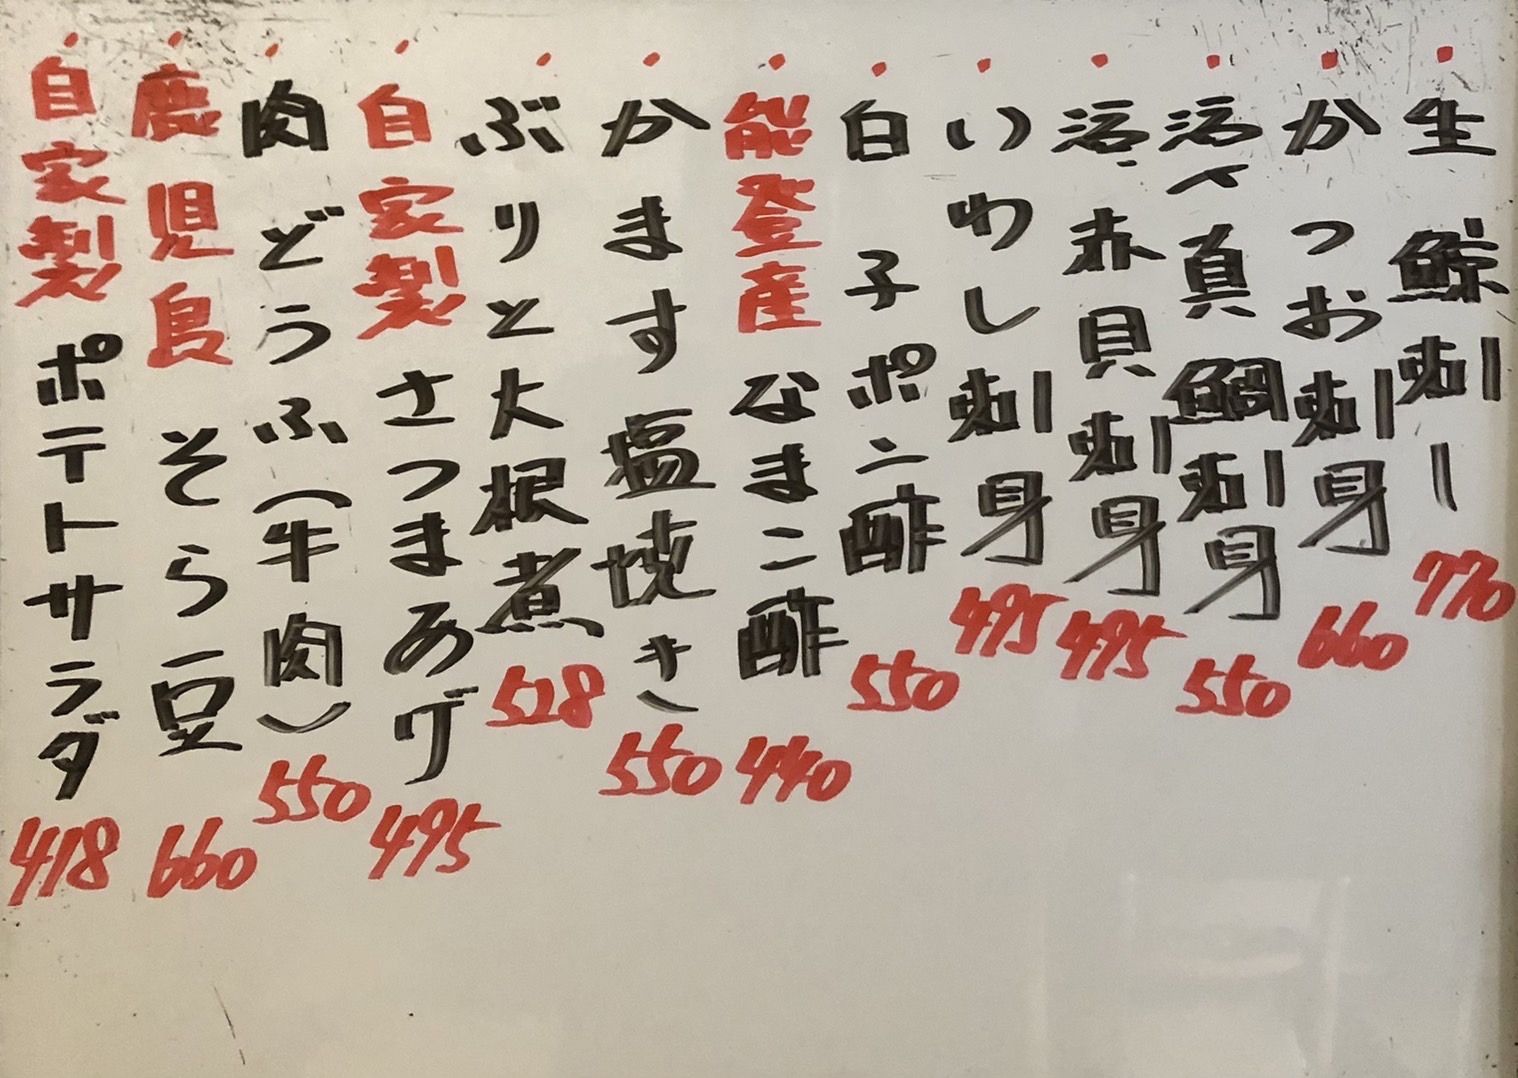 ・生鯨刺し 770
・かつお刺身 660
・活〆真鯛刺身 550
・活赤貝刺身 495
・いわし刺身 495
・白子ポン酢 550
・能登産なまこ酢 440
・かます塩焼き 550
・ぶりと大根煮 528
・自家製さつまあげ 495
・肉どうふ(牛肉) 550
・鹿児島そら豆 660
・自家製ポテトサラダ 418